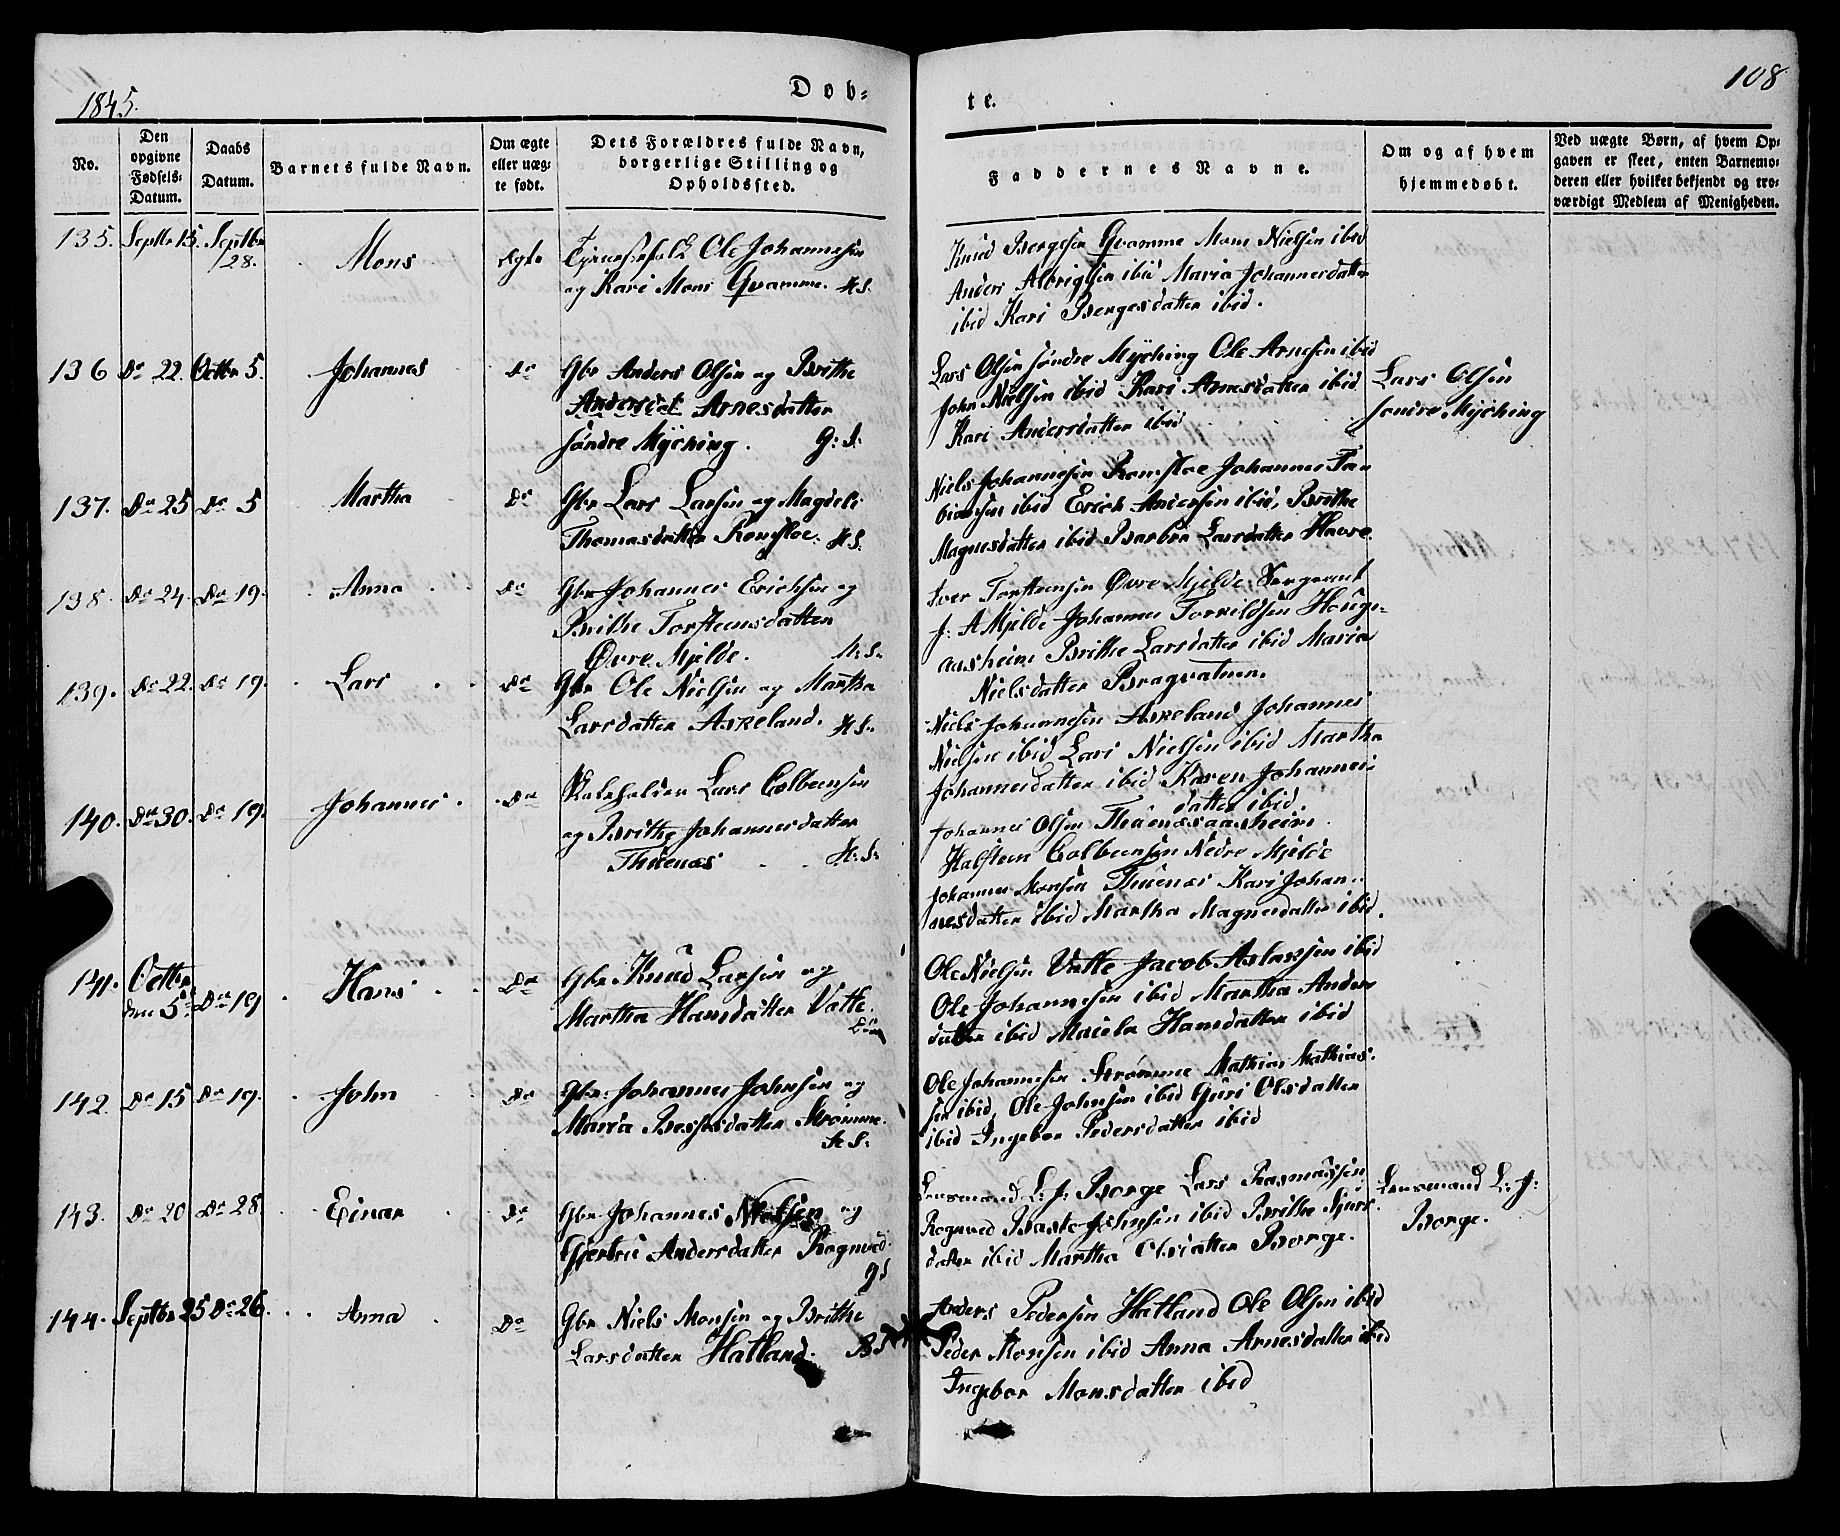 1845.
Døb-
te.
108
No.
Den opgivne Fødsels-Datum.
Daabs Datum.
Barnets fulde Navn.
Om ægte eller uægte født.
Dets Forældres fulde Navn, borgerlige Stilling og Opholdssted.
Faddernes Navne.
Om og af hvem hjemmedøbt.
Ved uægte Børn, af hvem Opgaven er skeet, enten Barnemoderen eller hvilket bekjendt og troværdigt Medlem af Menigheden.
135. Septbr 15. Septbr 28. Mons Ægte
Tjenestefolk Ole Johannesen
og Kari Mons Qvamme. H.S.
Knud Bergesen Qvamme Mons Nielsen ibid
Anders Albrigtsen ibid Maria Johannesdatter
ibid Kari Bergesdatter ibid.
136 Do 22. Octbr 5. Johannes Do
Gbr Anders Olsen og Brithe
Andersdat Arnesdatter
søndre Myching. G: S:
Lars Olsen søndre Myching Ole Arnesen ibid
John Nielsen ibid Kari Arnesdatter ibid
Kari Andersdatter ibid
Lars Olsen
søndre Myching
137. Do 25 Do 5 Martha Do
Gbr Lars Larsen og Magdeli
Thomasdatter Romsloe. H.S.
Niels Johannesen Romsloe Johannes Fa-
biansen ibid Erich Andersen ibid, Brithe
Magnesdatter ibid Barbra Larsdatter Havre.
138. Do 24. Do 19. Anna Do
Gbr Johannes Erichsen og
Brithe Torsteensdatter
Øvre Mjelde. H.S.
Iver Torsteensen Øvre Mjelde. Sergeant
J: A Mjelde Johannes Torkildsen Houge-
aasheim Brithe Larsdatter ibid Maria
Nielsdatter Bragvatnen.
139. Do 22. Do 19. Lars Do
Gbr Ole Nielsen og Martha
Larsdatter Askeland. H.S.
Niels Johannesen Askeland Johannes
Nielsen ibid Lars Nielsen ibid Martha
Johannesdatter ibid Karen Johannes-
datter ibid.
140. Do 30. Do 19. Johannes. Do
Lars Colbeensen
og Brithe Johannesdatter
Thuenæs H.S.
Johannes Olsen Thuenæsaasheim.
Halsteen Colbeensen Nedre Mjelde
Johannes Monsen Thuenæs Kari Johan-
nesdatter ibid Martha Magnesdatter ibid.
141. Octbr den 5te Do 19 Hans Do
Gbr Knud Larsen og
Martha Hansdatter Vatle.
Ole Nielsen Vatle Jacob Aslaksen ibid
Ole Johannesen ibid Martha Anders
datter ibid Hansdatter ibid
142. Do 15 Do 19. John Do
Gbr. Johannes Johnsen og
Maria Strømme.
H.S.
Ole Johannesen Strømme Mathias Mathias-
sen ibid, Ole Johnsen ibid Guri Olsdatter
ibid Ingebor Pedersdatter ibid
143. Do 20 Do 28. Einar Do
Gbr Johannes Nielsen og
Gjertru Andersdatter Rognved.
G S
Lensmand L: J: Borge Lars Rasmussen
Rognved Johnsen ibid Brithe Sjurs-
datter ibid Martha Olsdatter Borge.
Lensmand L: J:
Borge.
144. Septbr 25 Do 26. Anna Do
Gbr Niels Monsen og Brithe
Larsdatter Hatland. B S
Anders Pedersen Hatland Ole Olsen ibid
Peder Monsen ibid Anna Arnesdatter ibid
Ingebor Monsdatter ibid